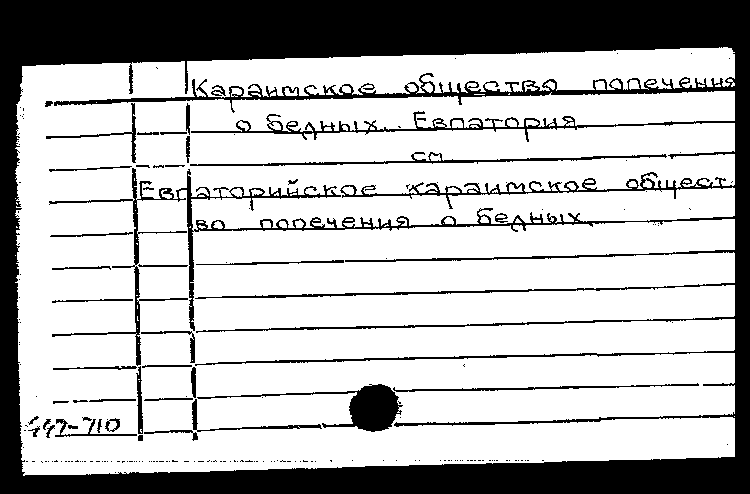 Караимское общество попечения
о бедных. Евпатория
см.
Евпаторийское караимское общест-
во попечения о бедных.
447-710